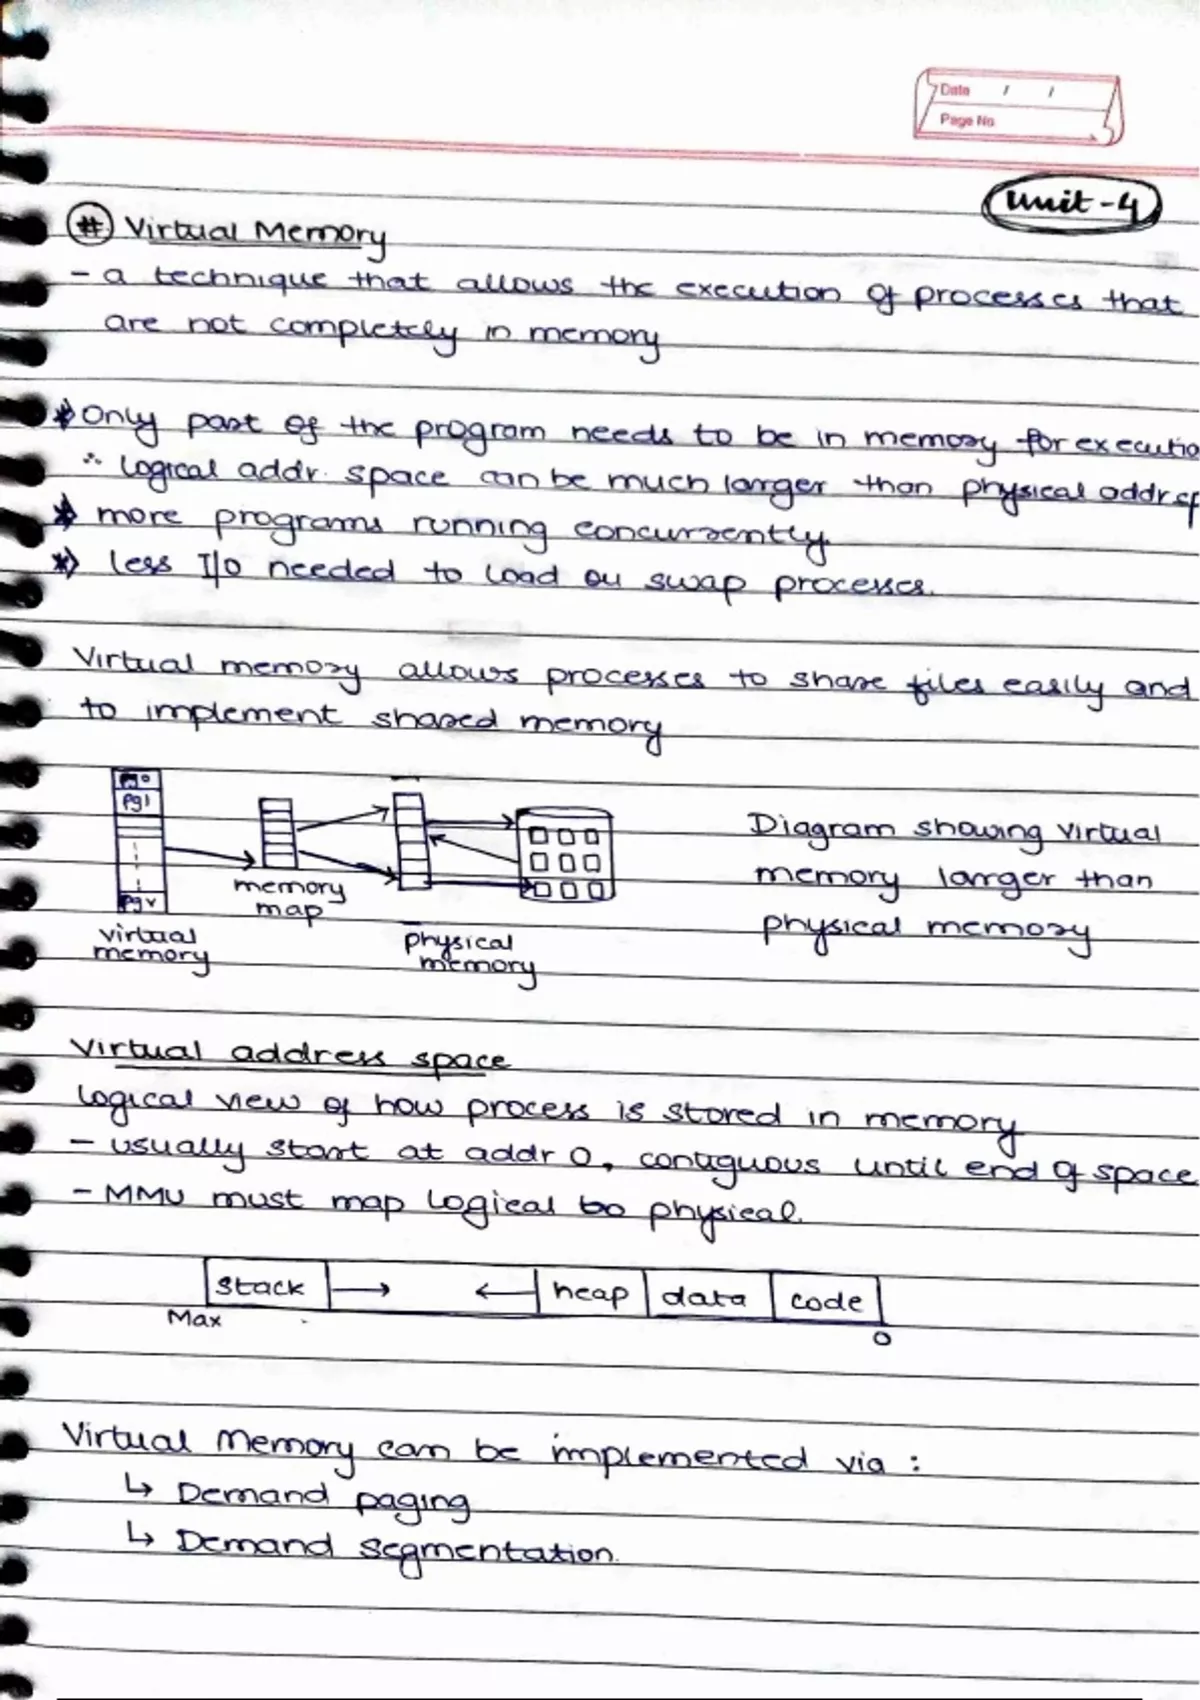 Date / /
Page No
Unit-4
# Virtual Memory
- a technique that allows the execution of processes that
are not completely in memory
* Only part of the program needs to be in memory for executio
∴ logical addr. space can be much larger than physical addr.sp
* more programs running concurrently.
* less I/O needed to load ou swap processes.
Virtual memory allows processes to share files easily and
to implement shared memory
pg0
pg1
pgv
memory
map
virtual
memory
physical
memory
Diagram showing virtual
memory larger than
physical memory
Virtual address space
logical view of how process is stored in memory
- usually start at addr 0, contiguous until end of space
- MMU must map logical to physical.
stack → ← heap data code
Max
0
Virtual Memory can be implemented via :
↳ Demand paging
↳ Demand segmentation.